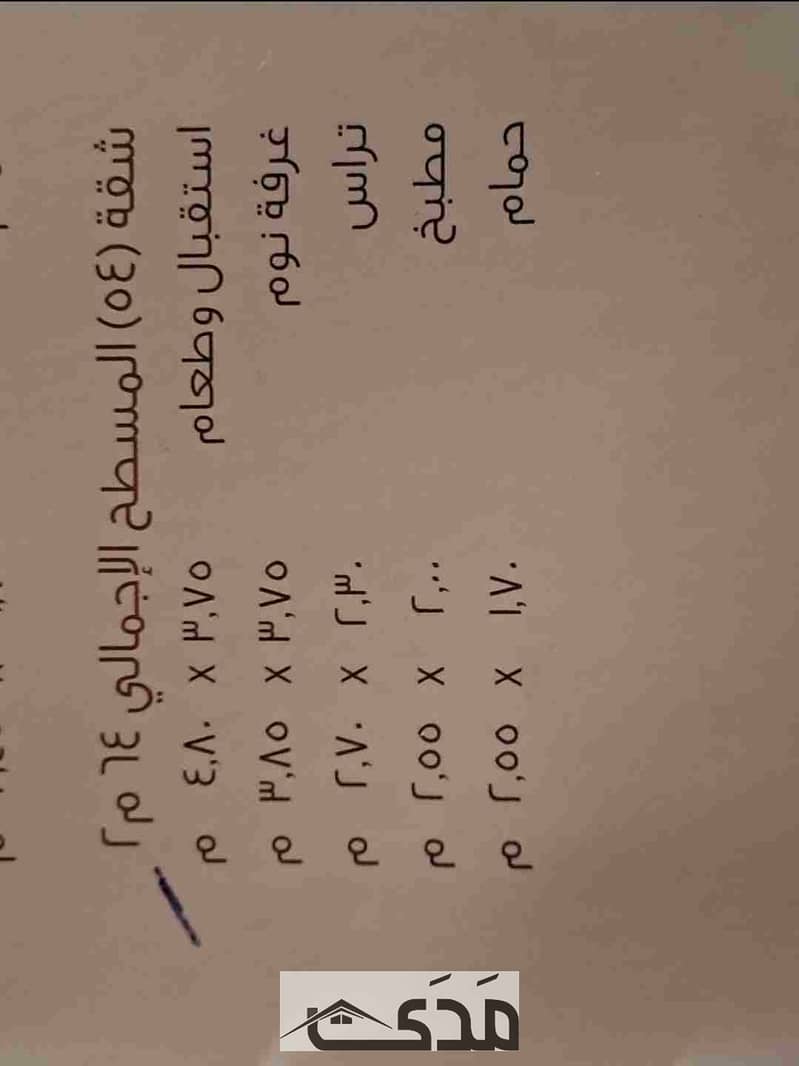 شقة (٥٤) المسطح الإجمالي ٦٤ م٢
استقبال وطعام ٣,٧٥ x ٤,٨٠ م
غرفة نوم ٣,٧٥ x ٣,٨٥ م
تراس ٢,٣٠ x ٢,٧٠ م
مطبخ ٢,٠٠ x ٢,٥٥ م
حمام ١,٧٠ x ٢,٥٥ م
مَدَى